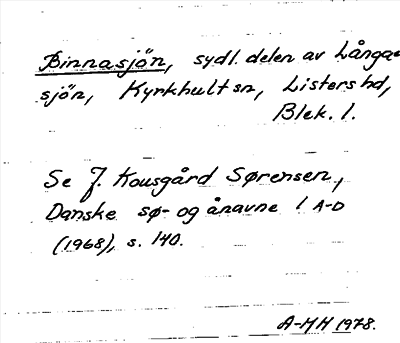 Binnasjön, sydl. delen av Långa-
sjön, Kyrkhult sn, Listers hd,
Blek. l.
Se J. Kousgård Sørensen,
Danske sø- og ånavne 1 A-D
(1968), s. 140.
A-MH 1978.